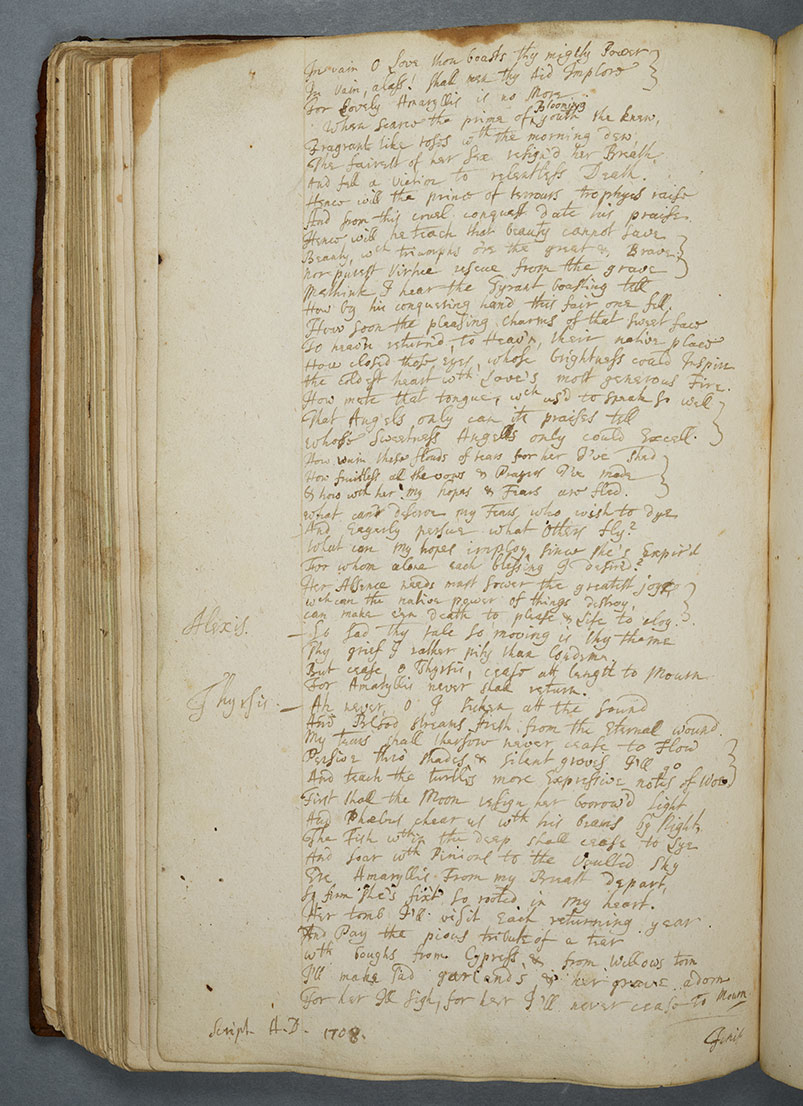 In vain O Love thou boasts thy mighty Power
In vain, alass! shall men thy Aid Implore
For Lovely Amaryllis is no More
When scarce the prime of Blooming youth she knew,
Fragrant like roses wth the morning dew,
The fairest of her Sex resign'd her Breath
And fell a Victim to relentless Death.
Hence will the prince of terrours trophyes raise
And from this cruel conquest date his praise.
Hence will he teach that beauty cannot save
Beauty, wch triumphs o're the great & Brave
Nor purest Virtue rescue from the grave
Methink I hear the Tyrant boasting tell
How by his conquering hand this fair one fell,
How soon the pleasing charms of that sweet face
To heav'n return'd, to Heav'n, their native place
How closed those eyes, whose brightness could Inspire
the coldest heart wth Love's most generous Fire.
How mute that tongue, wch us'd to speak so well
That Angels only can its praises tell
whose sweetness Angells only could Excell.
How vain these flouds of tears for her I've shed
How fruitless all the vows & Prayers I've made
& how wth her my hopes & Fears are fled.
What can deserve my Fears, who wish to dye
And Eagerly persue what others fly?
What can my hopes imploy, since she's Expir'd
For whom alone each blessing I desir'd?
Her Absence needs must sower the greatest joys
wch can the native power of things destroy,
can make e'en death to please & Life to cloy.
Alexis. – So sad thy tale so moving is thy theme
Thy grief I rather pity than Condemn.
But cease, o Thyrsis, cease att length to Mourn
For Amaryllis never shall return.
Thyrsis. – Ah never, o I sicken att the sound
And Blood streams fresh from the Eternal wound.
My tears shall therefore never cease to Flow
Pensive thro' shades & silent groves I'll go
And teach the turtles more Expressive notes of Woe
First shall the Moon resign her borrow'd light
And Phoebus chear us wth his beams by Night,
The Fish wthin the deep shall cease to Lye
And soar wth Pinions to the Vaulted sky
Ere Amaryllis From my Breast depart,
So firm she's fixt so rooted in my heart.
Her tomb I'll visit Each returning year
And Pay the pious tribute of a tear
wth boughs from Cypress & from Willows torn
I'll make sad garlands & her grave adorn
For her I'll sigh, for her I'll never cease To Mourn
Script A.D. 1708.
Finis